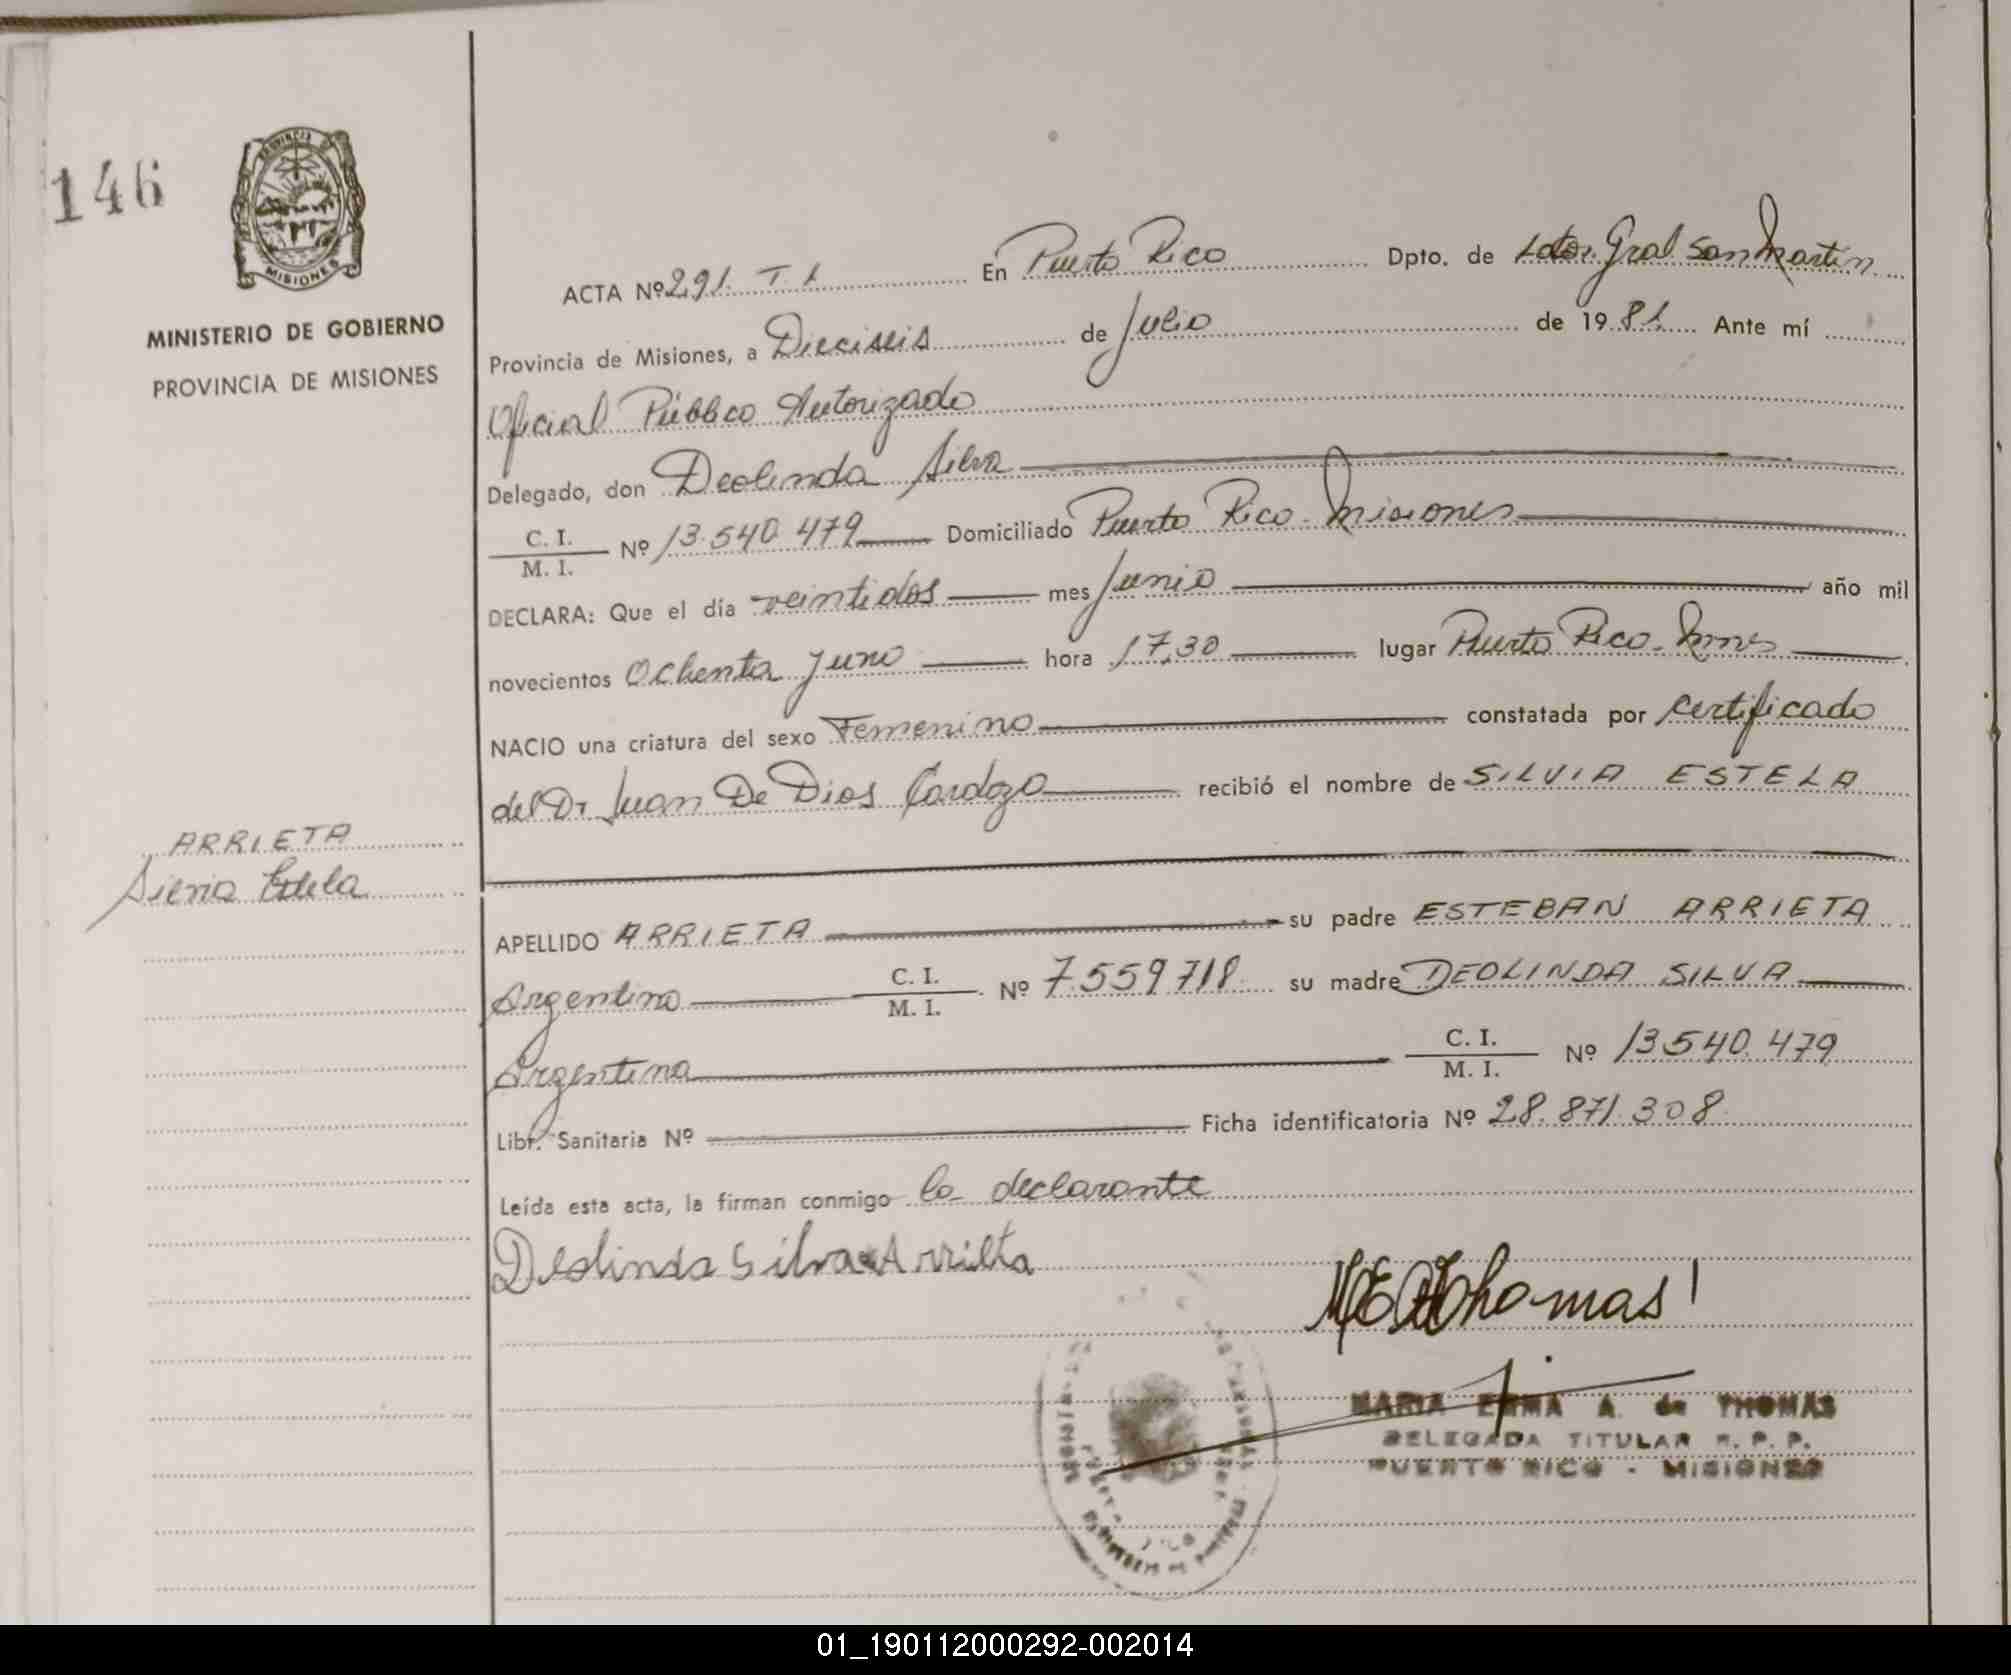 146
PROVINCIA DE
MISIONES
MINISTERIO DE GOBIERNO
PROVINCIA DE MISIONES
ARRIETA
Silvia Estela
ACTA Nº 291. T. 1 En Puerto Rico Dpto. de Ldor. Gral San Martin
Provincia de Misiones, a Dieciseis de Julio de 19 81. Ante mí
Oficial Público Autorizado
Delegado, don Deolinda Silva
C. I.
M. I. Nº 13.540.479 Domiciliado Puerto Rico. Misiones
DECLARA: Que el día veintidos mes Junio año mil
novecientos Ochenta y uno hora 17,30 lugar Puerto Rico. Mnes
NACIO una criatura del sexo Femenino constatada por certificado
del Dr Juan De Dios Cardozo recibió el nombre de SILVIA ESTELA
APELLIDO ARRIETA su padre ESTEBAN ARRIETA
Argentino C. I.
M. I. Nº 7.559.718 su madre DEOLINDA SILVA
Argentina C. I.
M. I. Nº 13.540.479
Libr. Sanitaria Nº Ficha identificatoria Nº 28.871.308
Leída esta acta, la firman conmigo la declarante
Deolinda Silva Arrieta
Thomas
MARIA EMMA A. de THOMAS
DELEGADA TITULAR R. P. P.
PUERTO RICO - MISIONES
01_190112000292-002014